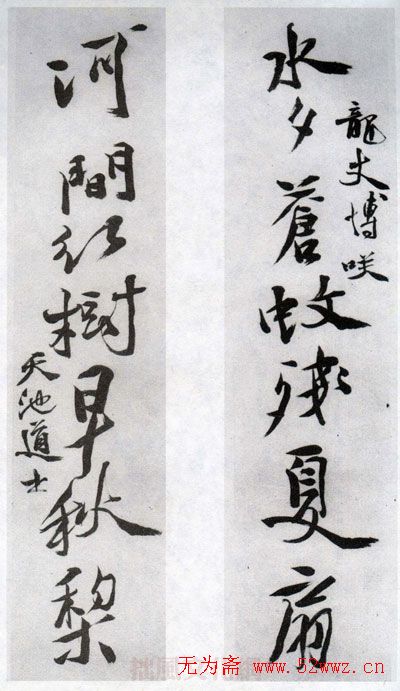 龍丈博咲
水夕蒼蚊殘夏扇
河間紅樹早秋梨
天池道士
无为斋 www.52wwz.cn